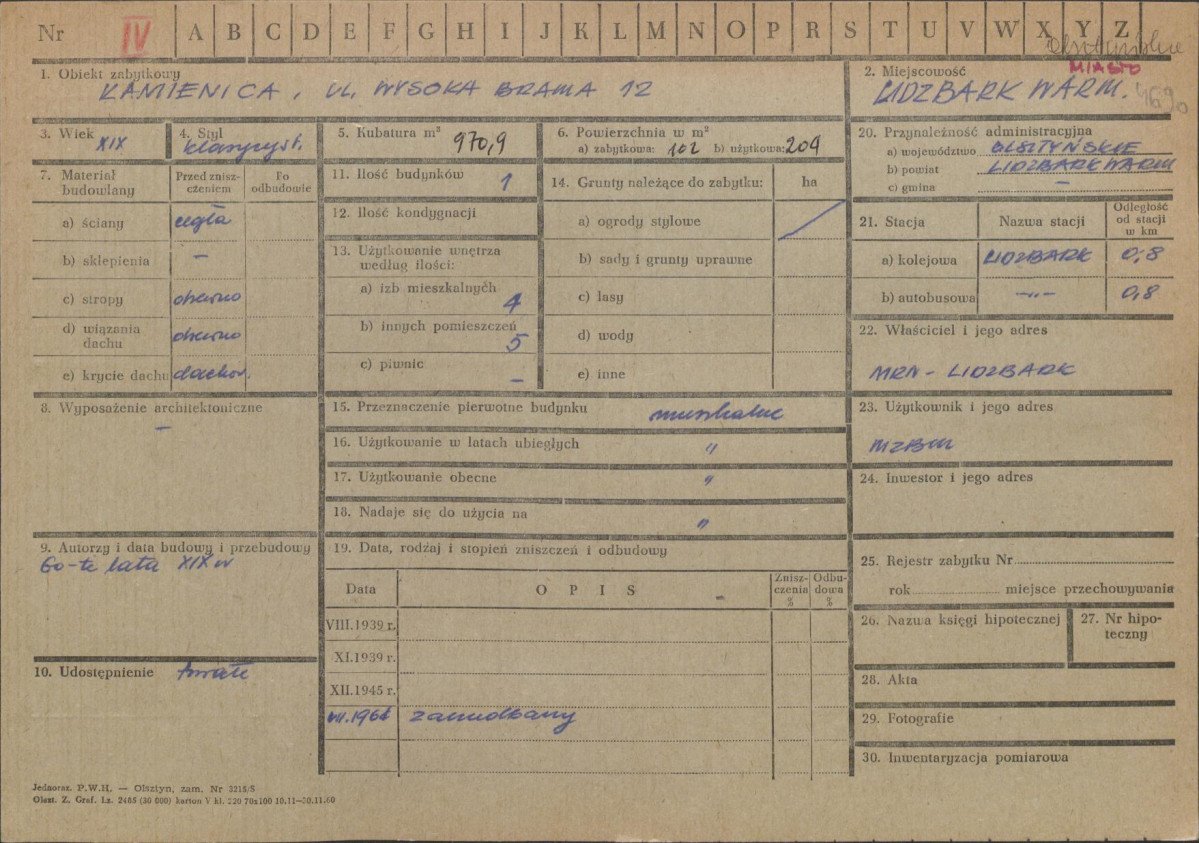 Nr IV A B C D E F G H I J K L M N O P R S T U V W X Y Z
olsztyńskie
MIASTO
1. Obiekt zabytkowy
KAMIENICA, UL. WYSOKA BRAMA 12
2. Miejscowość
LIDZBARK WARM.
3. Wiek
XIX
4. Styl
klasycyst.
5. Kubatura m³
970,9
6. Powierzchnia w m²
a) zabytkowa: 102 b) użytkowa: 209
20. Przynależność administracyjna
a) województwo OLSZTYŃSKIE
b) powiat LIDZBARK WARM
c) gmina –
7. Materiał budowlany
Przed znisz-
czeniem
Po
odbudowie
a) ściany cegła
b) sklepienia –
c) stropy drewno
d) wiązania
dachu drewno
e) krycie dachu dachów.
11. Ilość budynków 1
12. Ilość kondygnacji
13. Użytkowanie wnętrza
według ilości:
a) izb mieszkalnych 4
b) innych pomieszczeń 5
c) piwnic –
14. Grunty należące do zabytku: ha
a) ogrody stylowe
b) sady i grunty uprawne
c) lasy
d) wody
e) inne
21. Stacja Nazwa stacji
Odległość
od stacji
w km
a) kolejowa LIDZBARK 0,8
b) autobusowa –„– 0,8
22. Właściciel i jego adres
MRN - LIDZBARK
8. Wyposażenie architektoniczne
–
15. Przeznaczenie pierwotne budynku mieszkalne
16. Użytkowanie w latach ubiegłych "
17. Użytkowanie obecne "
18. Nadaje się do użycia na "
23. Użytkownik i jego adres
MZBM
24. Inwestor i jego adres
9. Autorzy i data budowy i przebudowy
60-te lata XIX w
19. Data, rodzaj i stopień zniszczeń i odbudowy
Data OPIS
Znisz-
czenia
%
Odbu-
dowa
%
VIII.1939 r.
XI.1939 r.
XII.1945 r.
zaniedbany
25. Rejestr zabytku Nr
rok miejsce przechowywania
26. Nazwa księgi hipotecznej
27. Nr hipo-
teczny
10. Udostępnienie trwałe
28. Akta
29. Fotografie
30. Inwentaryzacja pomiarowa
Jednoraz. P.W.H. — Olsztyn, zam. Nr 3215/S
Olszt. Z. Graf. Lz. 2485 (30 000) karton V kl. 220 70x100 10.11—30.11.60